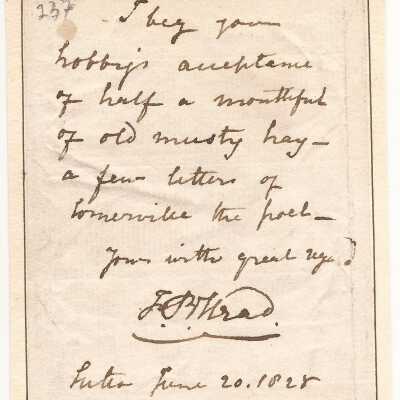 237
I beg your
hobby's acceptance
of half a mouthful
of old musty hay—
a few letters of
Somerville the poet—
yours with great regard
June 20. 1828